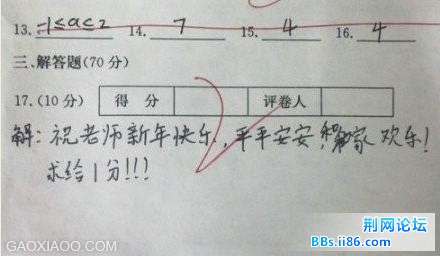 13. -1≤a≤2 14. 7 15. 4 16. 4
三、解答题(70分)
17.(10分) 得 分 评卷人
解：祝老师新年快乐，平平安安，家欢乐！
求给1分!!!
荆网论坛
BBs.ii86.com
GAOXIAOO.COM